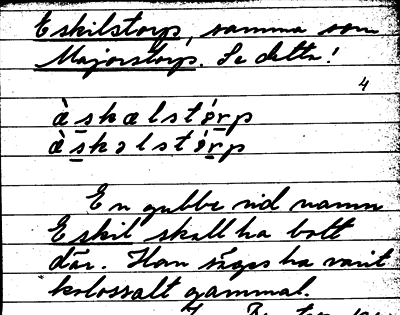 Eskilstorp, samma som
Majorstorp. Se detta!
4
àskælstórp
àskəlstórp
En gubbe vid namn
Eskil skall ha bott
där. Han säges ha varit
kolossalt gammal.